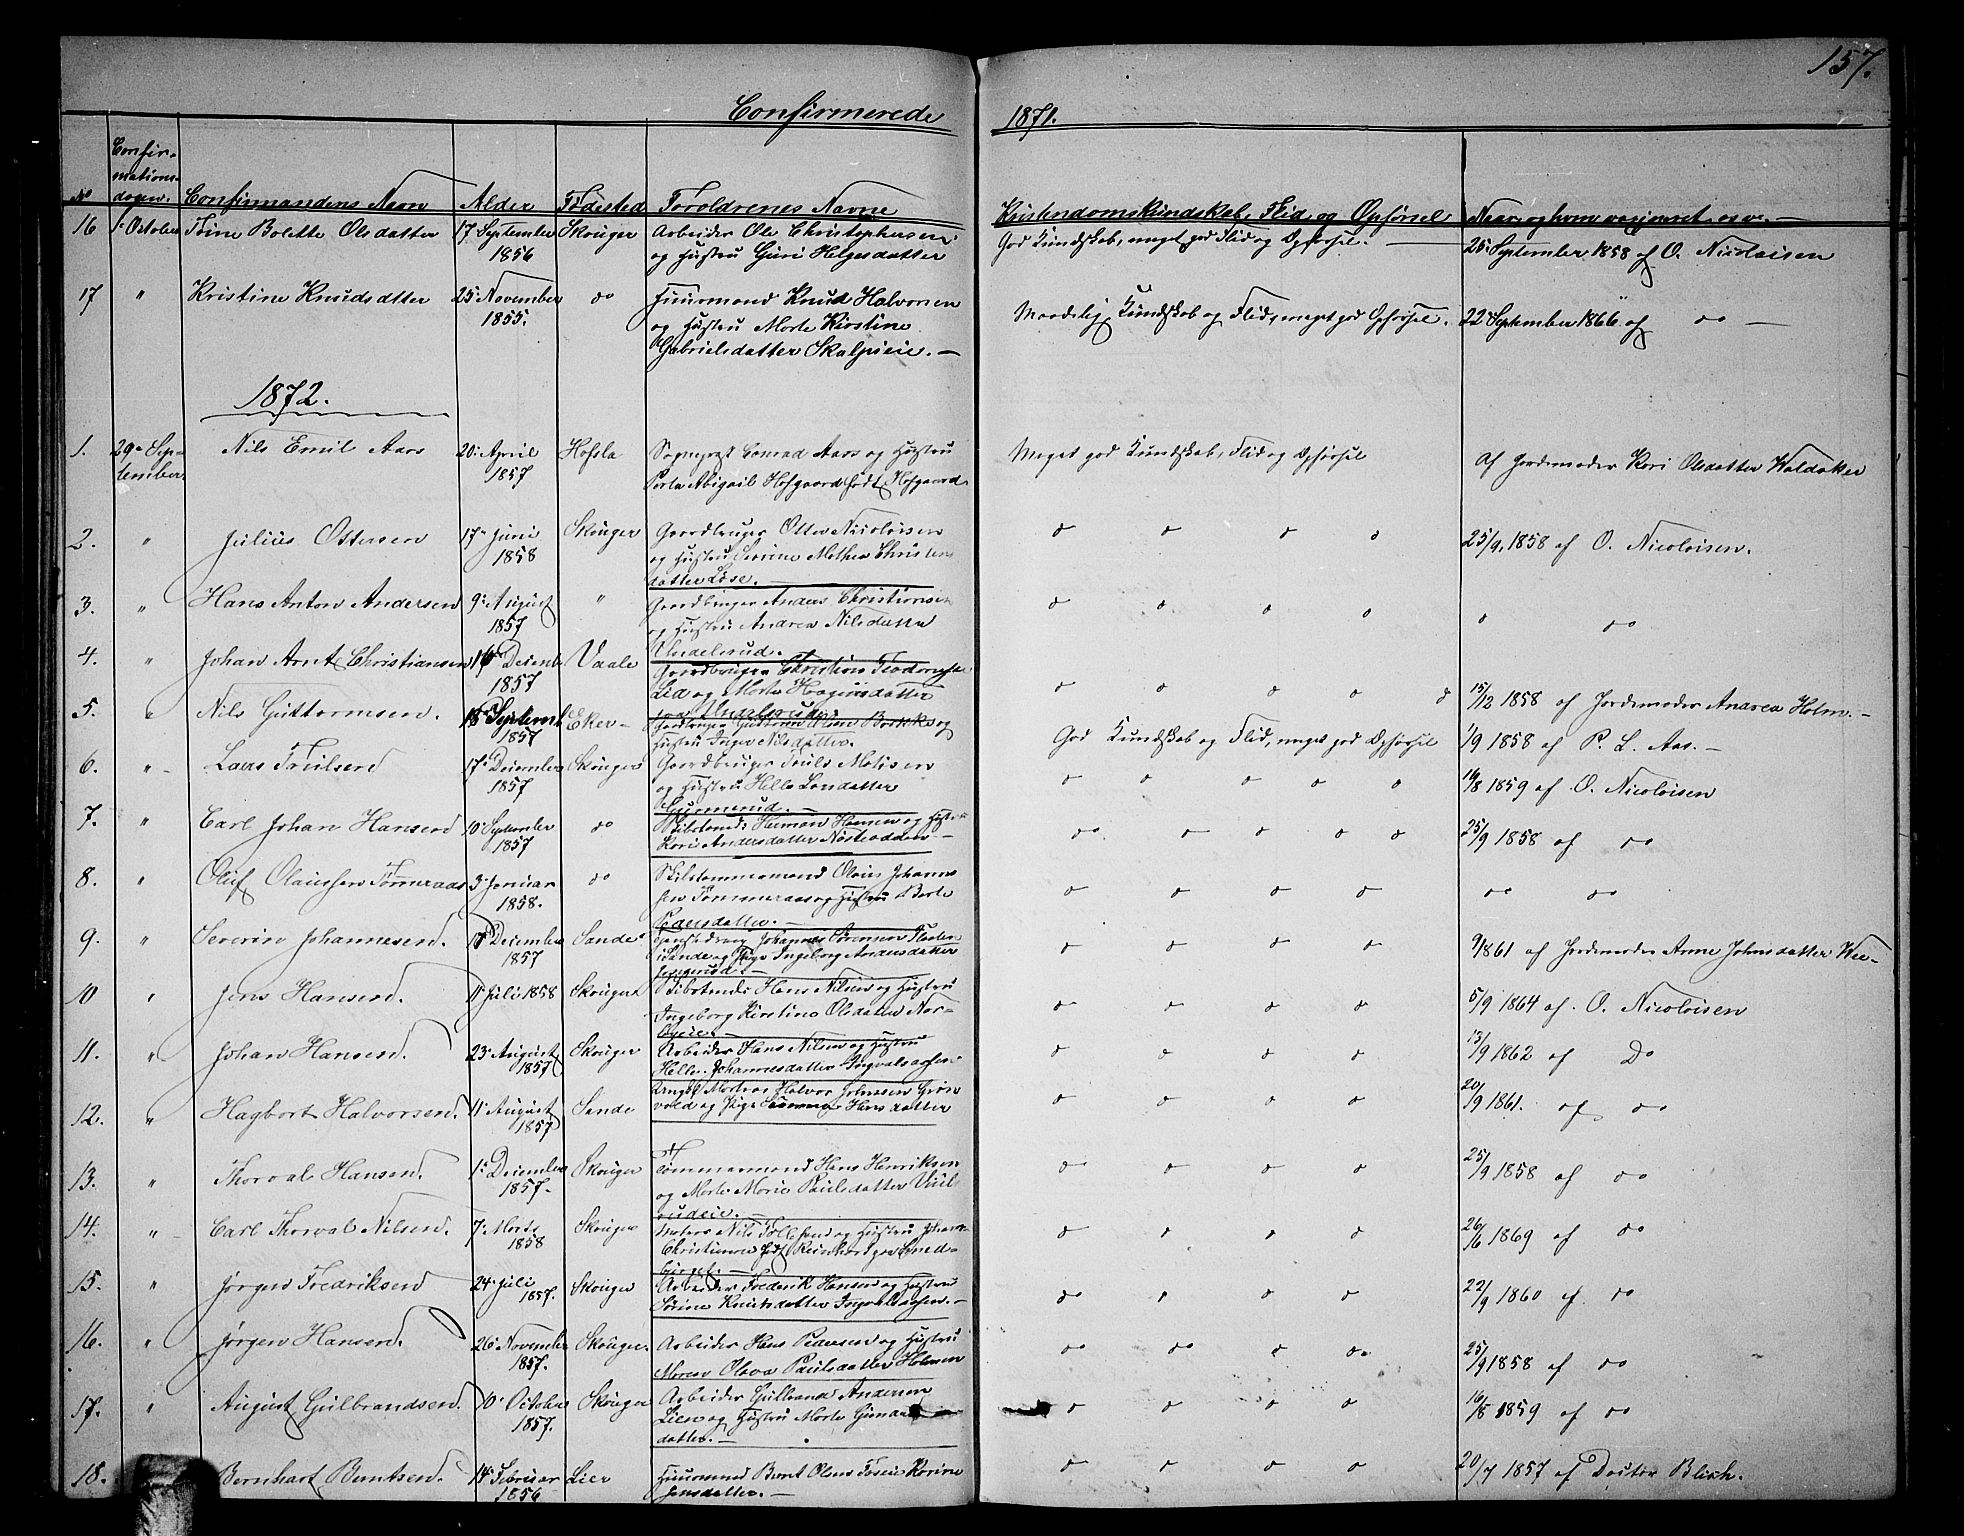 157.
Confirmerede 1871.
No Confirmationsdagen. Confirmandens Navn Alder Fødested Foroldrenes Navne Kristendomskundskab, Flid og Opførsel Naar og hvem vaccineret osv. —
16 1ste October Trine Bolette Olsdatter 17 September 1856 Skouger Arbeider Ole Christophersen og Hustru Guri Helgesdatter God Kundskab, meget god Flid og Opførsel. — 25 September 1858 af O. Nicolaisen
17 " Kristine Knudsdatter 25 November 1855. do Huusmand Knud Halvorsen og Hustru Marte Kirstine Gabrielsdatter Skalpeie. — Maadelig Kundskab og Flid, meget god Opførsel. 22 September 1866 af do —
1872.
1. 29de September Nils Emil Aars 20 April 1857 Hofsla Sogneprest Conrad Aars og Hustru Abigail Hofgaard født Hofgaard Meget god Kundskab, Flid og Opførsel Af Jordemoder Kari Olsdatter Waldaker
2. " Julius Ottersen 17 Juni 1858 Skouger Gaardbruger Otter Nicolaisen og Hustru Serine Mathea Christensdatter Løse. — do do do do 25/9 1858 af O. Nicolaisen.
3. " Hans Anton Andersen 9 August 1857 " Gaardbruger Anders Christiansen og Hustru Andrea Nilsdatter Undelsrud. — do do do do do do
4. " Johan Arnt Christiansen 16 Decemb 1857 Vaale Gaardbruger Christian Lid og Marte Haagensdatter do do do do do 15/12 1858 af Jordemoder Andrea Holm. —
5. " Nils Guttormsen. 18 Septemb 1857 Eker — Gaardbruger Guttorm Olsen og Hustru Inger Nilsdatter. God Kundskab og Flid, meget god Opførsel 1/9 1858 af P. L. Aas. —
6. " Lars Trulsen 17 December 1857 Skouger Gaardbruger Truls Matisen og Hustru Helle Larsdatter Gurmerud. — do do do do 14/8 1859 af O. Nicolaisen
7. " Carl Johan Hansen 10 September 1857 do Herman Hansen og Hustru Kari Andersdatter do do do do do 25/9 1858 af do
8. " Oluf Olaussen Tømmeraas 3 Januar 1858. do Skibstømmermand Olaus Johannessen Tømmeraas og Hustru Berte Pedersdatter. — do do do do do do
9. " Severin Johannesen. 10 December 1857 Sande Johannes Sørensen Sande og Pige Ingeborg Andersdatter do do do do 9/ 1861 af Jordemoder Anne Johnsdatter
10 " Jens Hansen. 11 Juli 1858 Skouger Hans Nilsen og Hustru Ingeborg Kirstine Olsdatter do do do do 5/9 1864 af O. Nicolaisen
11. " Johan Hansen. 23 August 1857 Skouger Arbeider Hans Nilsen og Hustru Helle Johannesdatter do do do do 13/9 1862 af Do
12. " Hagbart Halvorsen. 11 August 1857 Sande Halvor Johnsen Grønvold og Pige Hansdatter do do do do 20/9 1861. af do
13. " Thorval Hansen. 1 December 1857. Skouger Tømmermand Hans Henriksen og Marte Marie Paulsdatter do do do do 25/9 1858 af do
14. " Carl Thorval Nilsen. 7 Marts 1858 Skouger Nils Tollefsen og Hustru Johanne Christianne do do do do 26/6 1869 af do
15. " Jørgen Fredriksen 24 Juli 1857. Skouger Arbeider Frederik Hansen og Hustru Sørine Knutsdatter — do do do do 22/9 1860 af do
16. " Jørgen Hansen. 26 November 1857. Skouger. Arbeider Hans Pedersen og Hustru Maren Olava Paulsdatter Holmen do do do do 25/9 1858 af do
17. " August Gulbrandsen. 10 October 1857. Skouger Arbeider Gulbrand Andersen Lien og Hustru Marte datter. — do do do do 16/8 1859 af do
18. Bernhart Berntsen. 14 Februar 1856 Lier Huusmand Bernt Olsen og Karine Jensdatter. — do do do do 20/7 1857 af Doctor Blich.